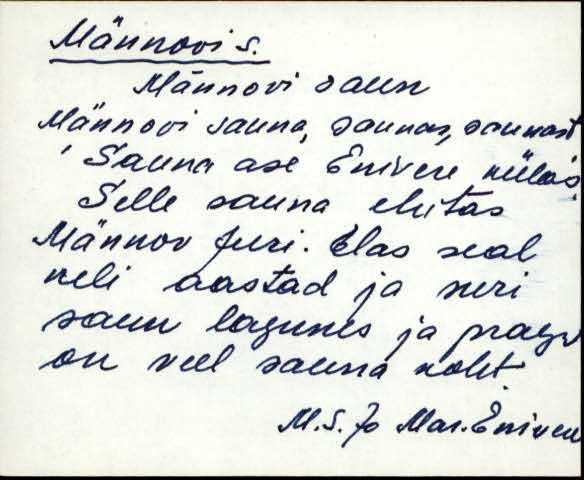 Männovi s.
Männovi saun
Männovi sauna, saunas, saunast
Sauna ase Enivere külas.
Selle sauna ehitas
Männov Juri. Elas seal
neli aastad ja suri
saun lagunes ja praegu
on veel sauna koht.
M.S. Jo Mar. Enivere